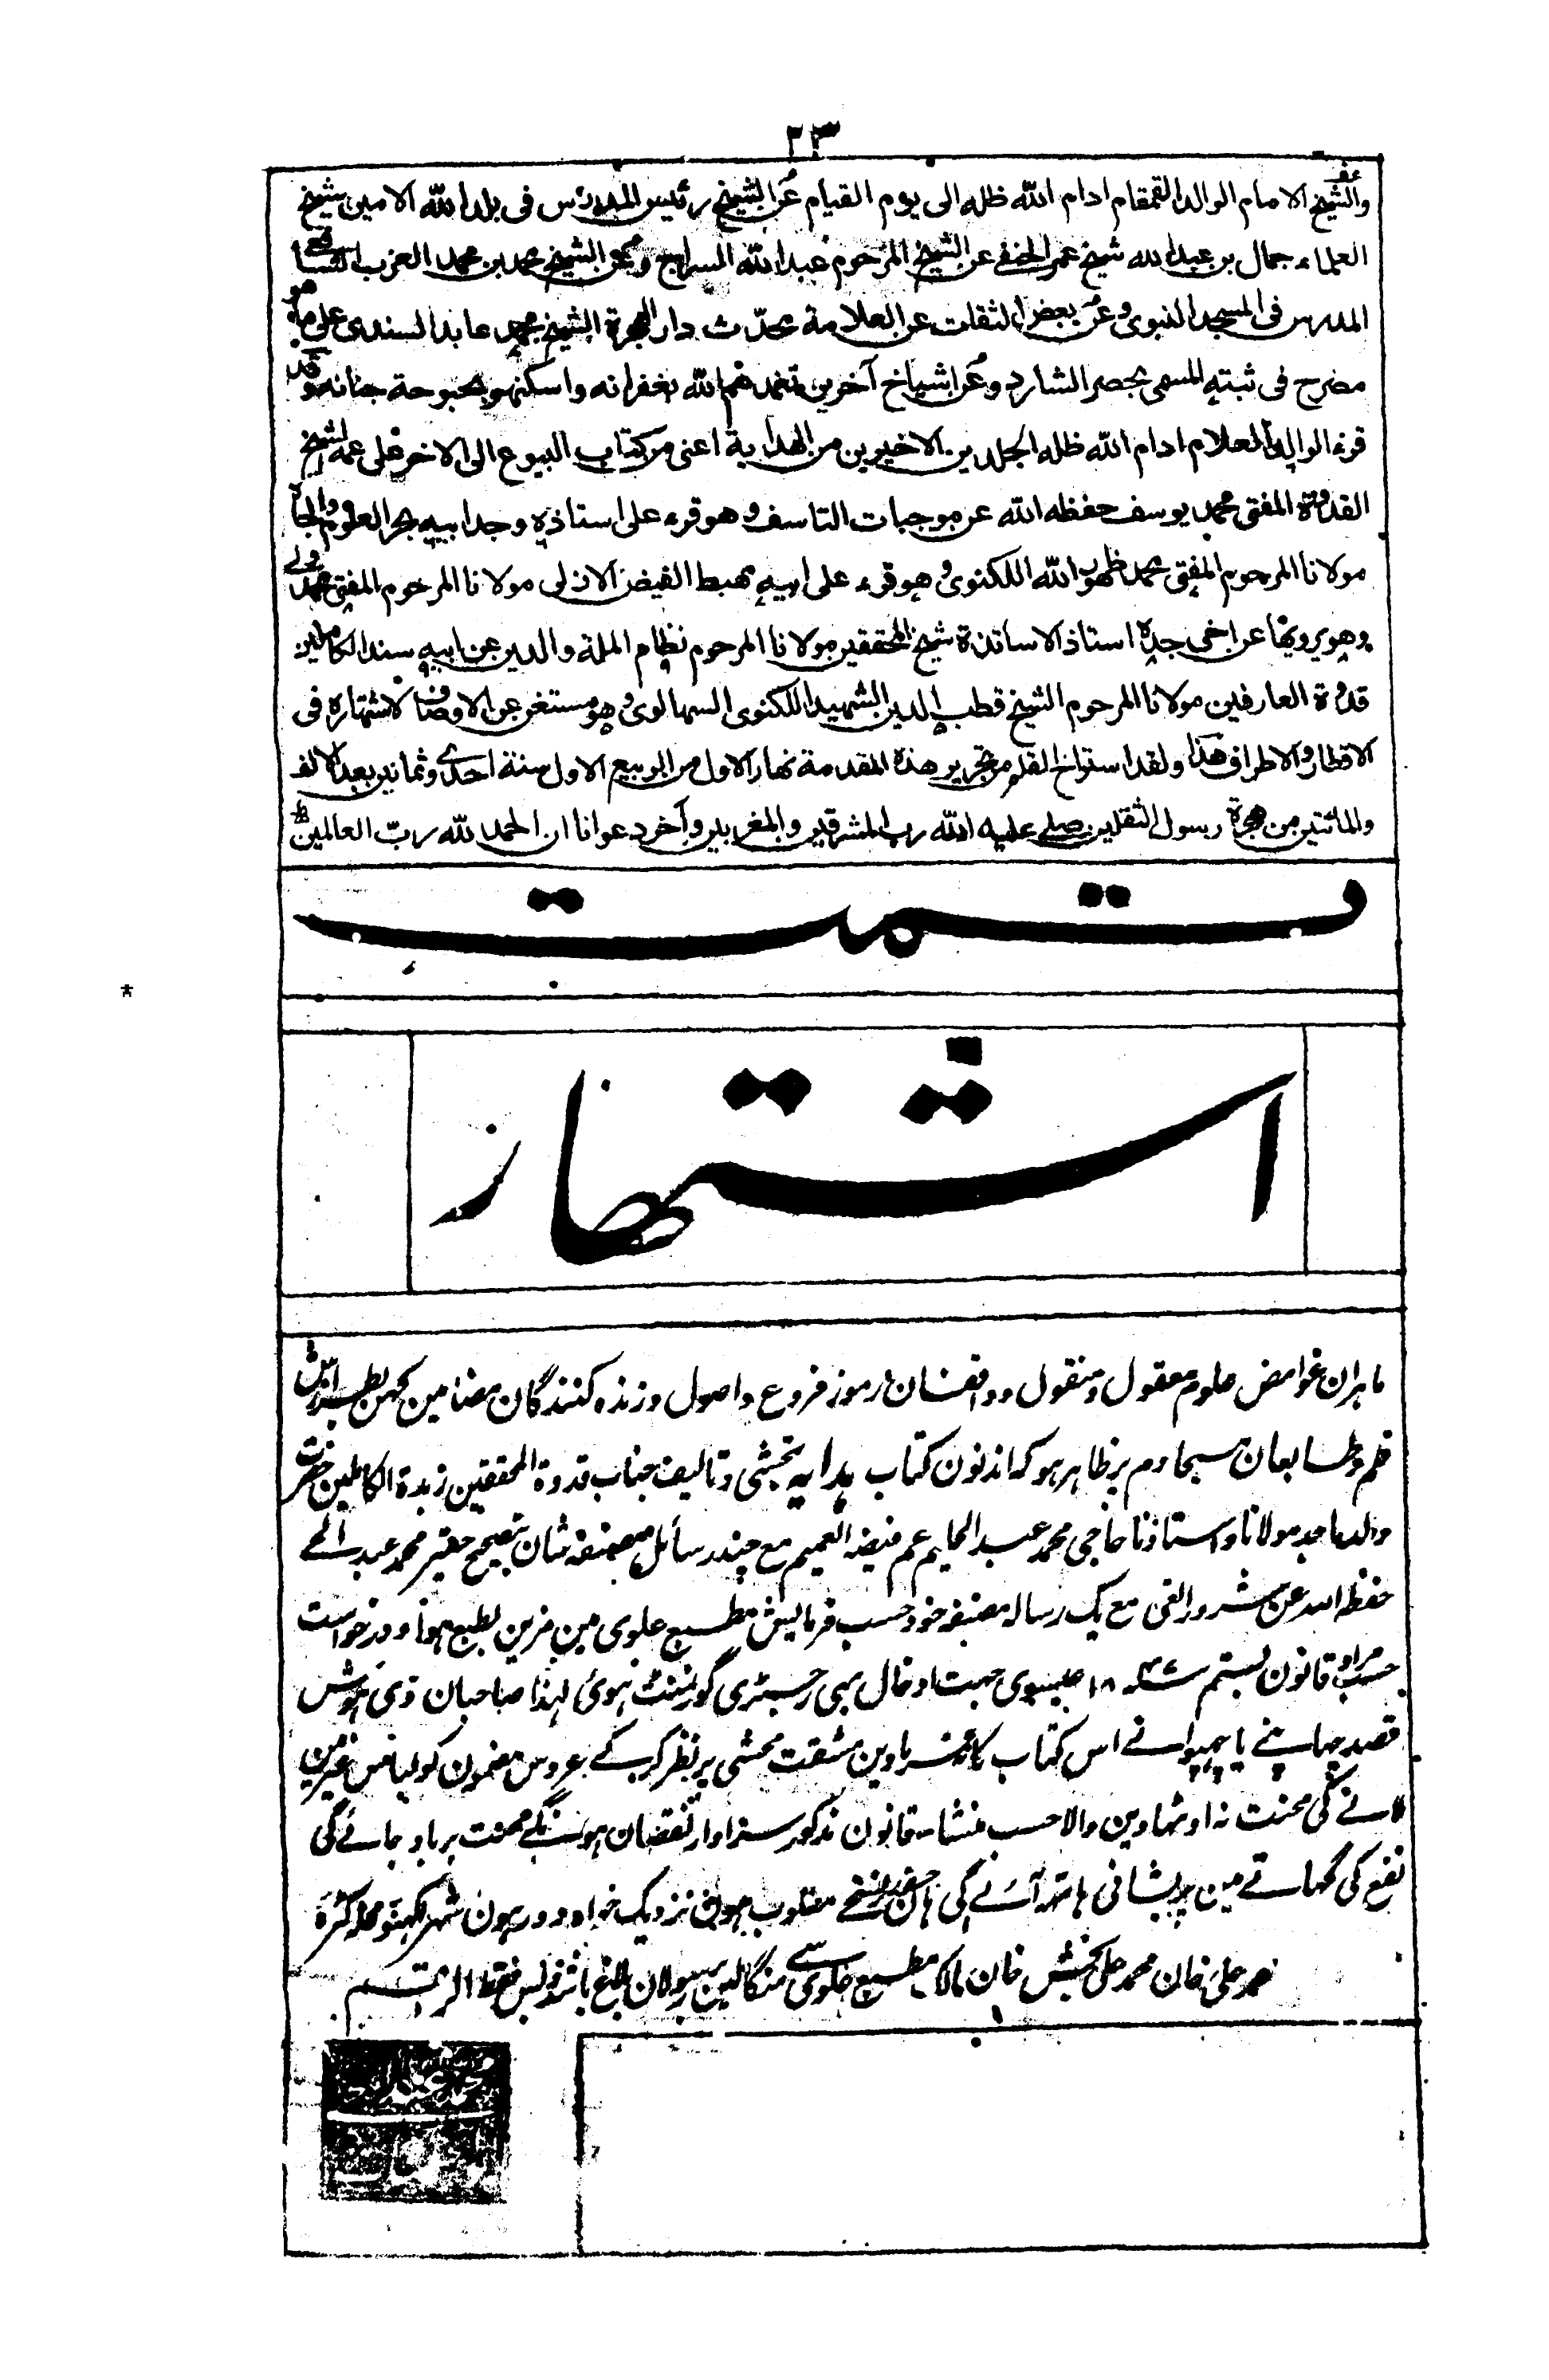 ٢٣
والشيخ الامام الوالد القمقام ادام الله ظله الى يوم القيام عن الشيخ رئيس المدرس فى بلد الله الامين شيخ
العلماء جمال بن عبد الله شيخ عمر الحنفى عن الشيخ المرحوم عبد الله السراج وعن الشيخ محمد بن محمد العزب الشافعى
المدرس فى المسجد النبوى وعن بعض الثقات عن العلامة محدّث دار الهجرة الشيخ محمد عابد السندى على ما هو
مضرح فى ثبته المسمى بحصر الشارد وعن اشياخ آخرين تغمدهم الله بغفرانه واسكنهم بحبوحة جنانه وقد
قرء الوالد العلام ادام الله ظله الجلدين الاخيرين من الهداية اعنى من كتاب البيوع الى الاخر على عمه الشيخ
القدوة المفتى محمد يوسف حفظه الله عن موجبات التاسف وهو قرء على استاذه وجد ابيه بحر العلوم
مولانا المرحوم المفتى محمد ظهور الله اللكنوى وهو قرء على ابيه مهبط الفيض الازلى مولانا المرحوم المفتى محمد ولى
وهو يرويها عن اخى جده استاذ الاساتذة شيخ المحققين مولانا المرحوم نظام الملة والدين عن ابيه سند الكاملين
قدوة العارفين مولانا المرحوم الشيخ قطب الدين الشهيد اللكنوى السهالوى وهو مستغن عن الاوصاف لاشتهاره فى
الاقطار والاطراف هذا ولقد استراح القلم من تحرير هذه المقدمة نهار الاول من الربيع الاول سنة احدى وثمانين بعد الالف
والمائتين من هجرة رسول الثقلين صلى عليه الله رب المشرقين والمغربين وآخر دعوانا ان الحمد لله ربّ العالمين
تمت
اشتهار
ماہران غوامض علوم معقول ومنقول وواقفان رموز فروع واصول وزندہ کنندگان مضامین کہن
قلم وطابعان مسیحا دم پر ظاہر ہو کہ اندنون کتاب ہدایہ بتحشی وتالیف جناب قدوة المحققین زبدة الکاملین حضرت
والد ماجد مولانا واستاذنا حاجی محمد عبد الحلیم عم فیضہ العمیم مع چند رسائل مصنفہ شان بتصحیح حقیر محمد عبد الحی
حفظہ اللہ عن شرور الغی مع یک رسالہ مصنفہ خود حسب فرمایش مطبع علوی مین مزین بطبع ہوا ودرخواست
حسب مراد قانون بستم عیسوی جہت ادخال بہی رجسٹری گورنمنٹ ہوئی لہذا صاحبان ذی ہوش
قصد چھاپنے یا چھپوانے اس کتاب کا نفرماوین مشقت محشی پر نظر کر کے عروس مضمون کو لباس غیر مین
لانے کی محنت نہ اوٹھاوین والا حسب منشاء قانون مذکور سزاوار نقصان ہونگے محنت برباد جائے گی
نفع کی گھاتے مین پریشانی ہاتھ آئے گی ہان جسقدر نسخے مطلوب ہون نزدیک خواہ دور ہون شہر لکہنؤ محلہ کٹرہ
محمد علی خان محمد علی بخش خان مالک مطبع علوی سے منگا لین بر رسولان بلاغ باشد وبس فقط الراقم